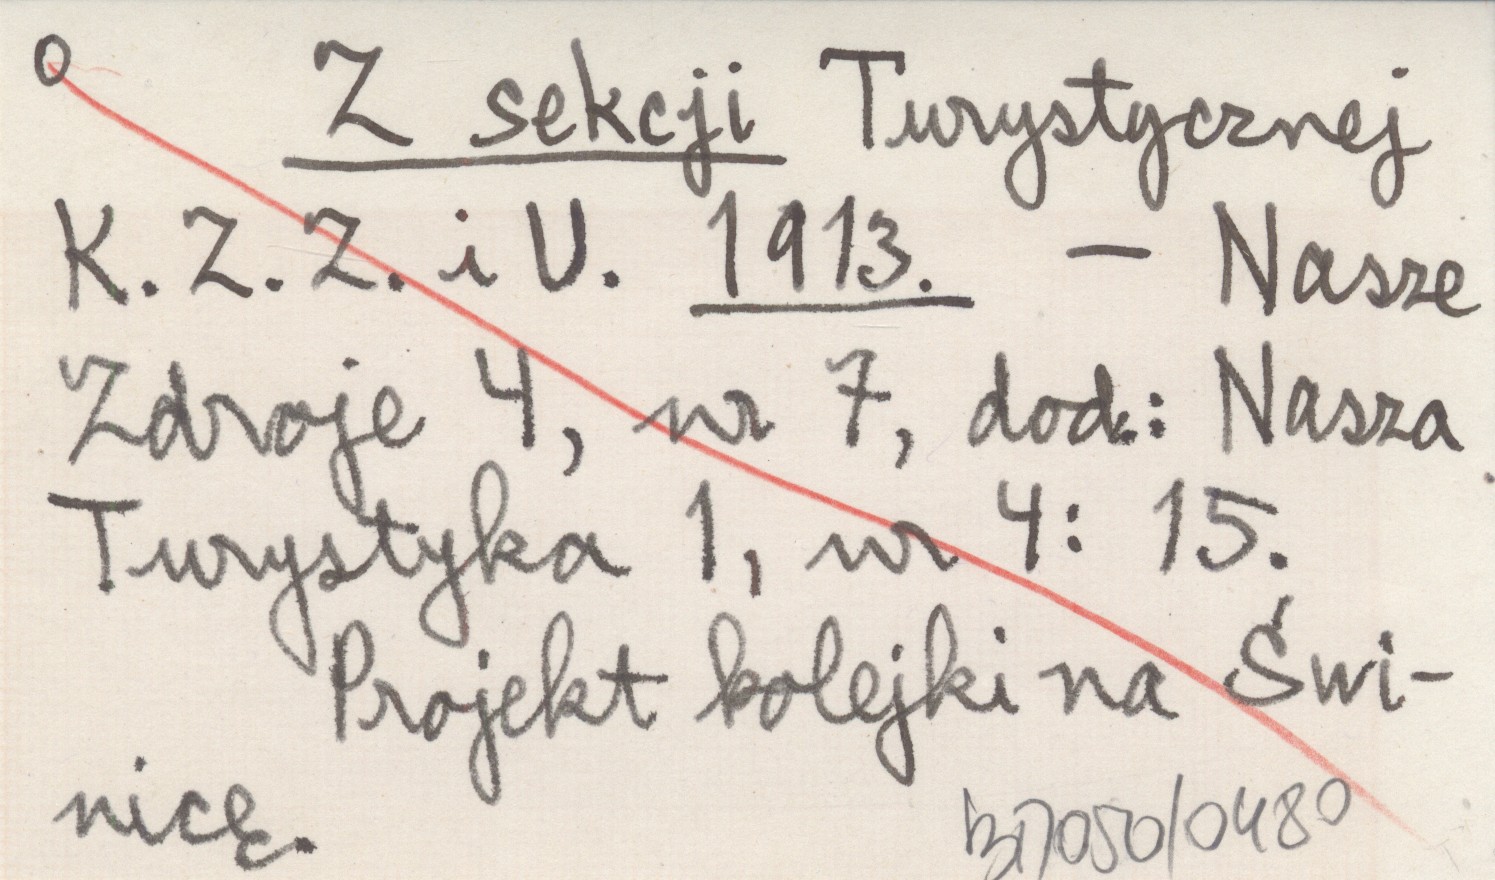 O Z sekcji Turystycznej
K. Z. Z. i U. 1913. — Nasze
Zdroje 4, nr 7, dod.: Nasza
Turystyka 1, nr 4: 15.
Projekt kolejki na Świ-
nicę.